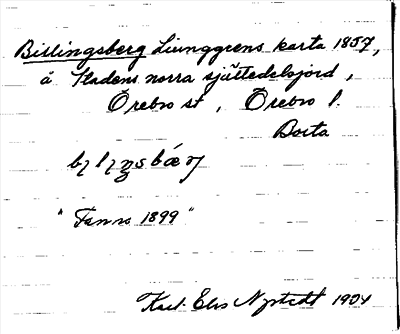 Billingsberg Ljunggrens karta 1857,
å Stadens norra sjättedelsjord,
Örebro st, Örebro l.
Borta
"Fanns 1899"
Karl-Elis Nystedt 1904